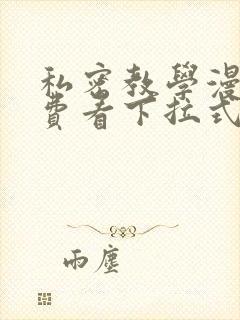 私密教學漫
費看下拉式
雨塵